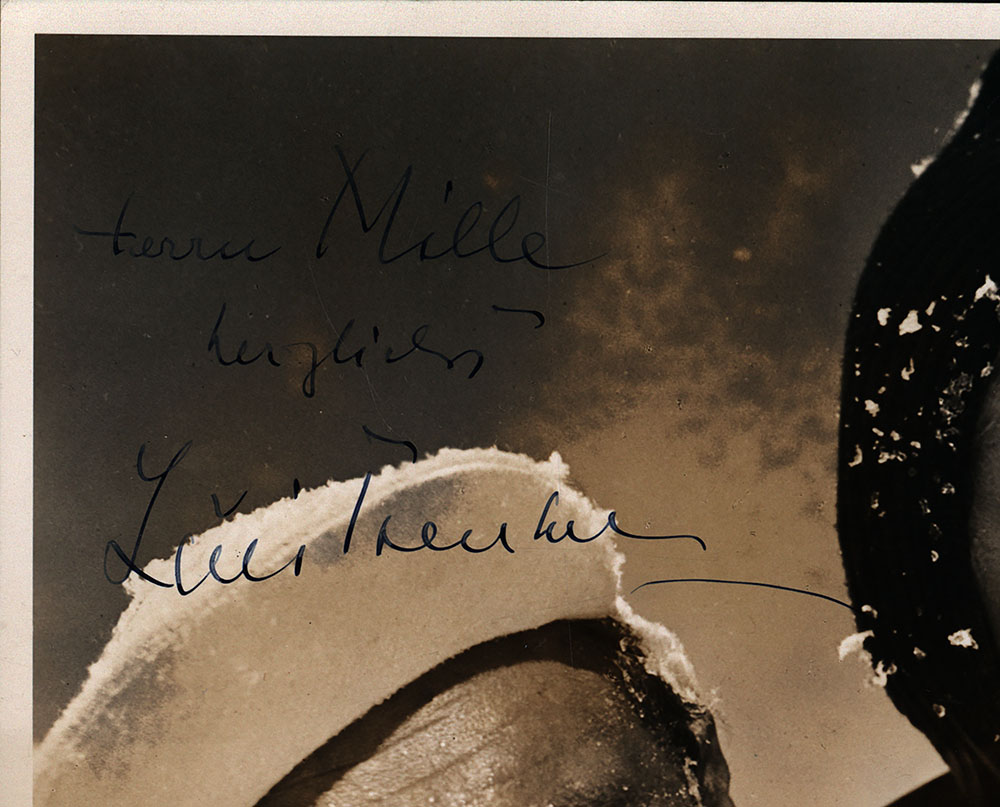 Herrn Mille
herzlichst
Luis Trenker